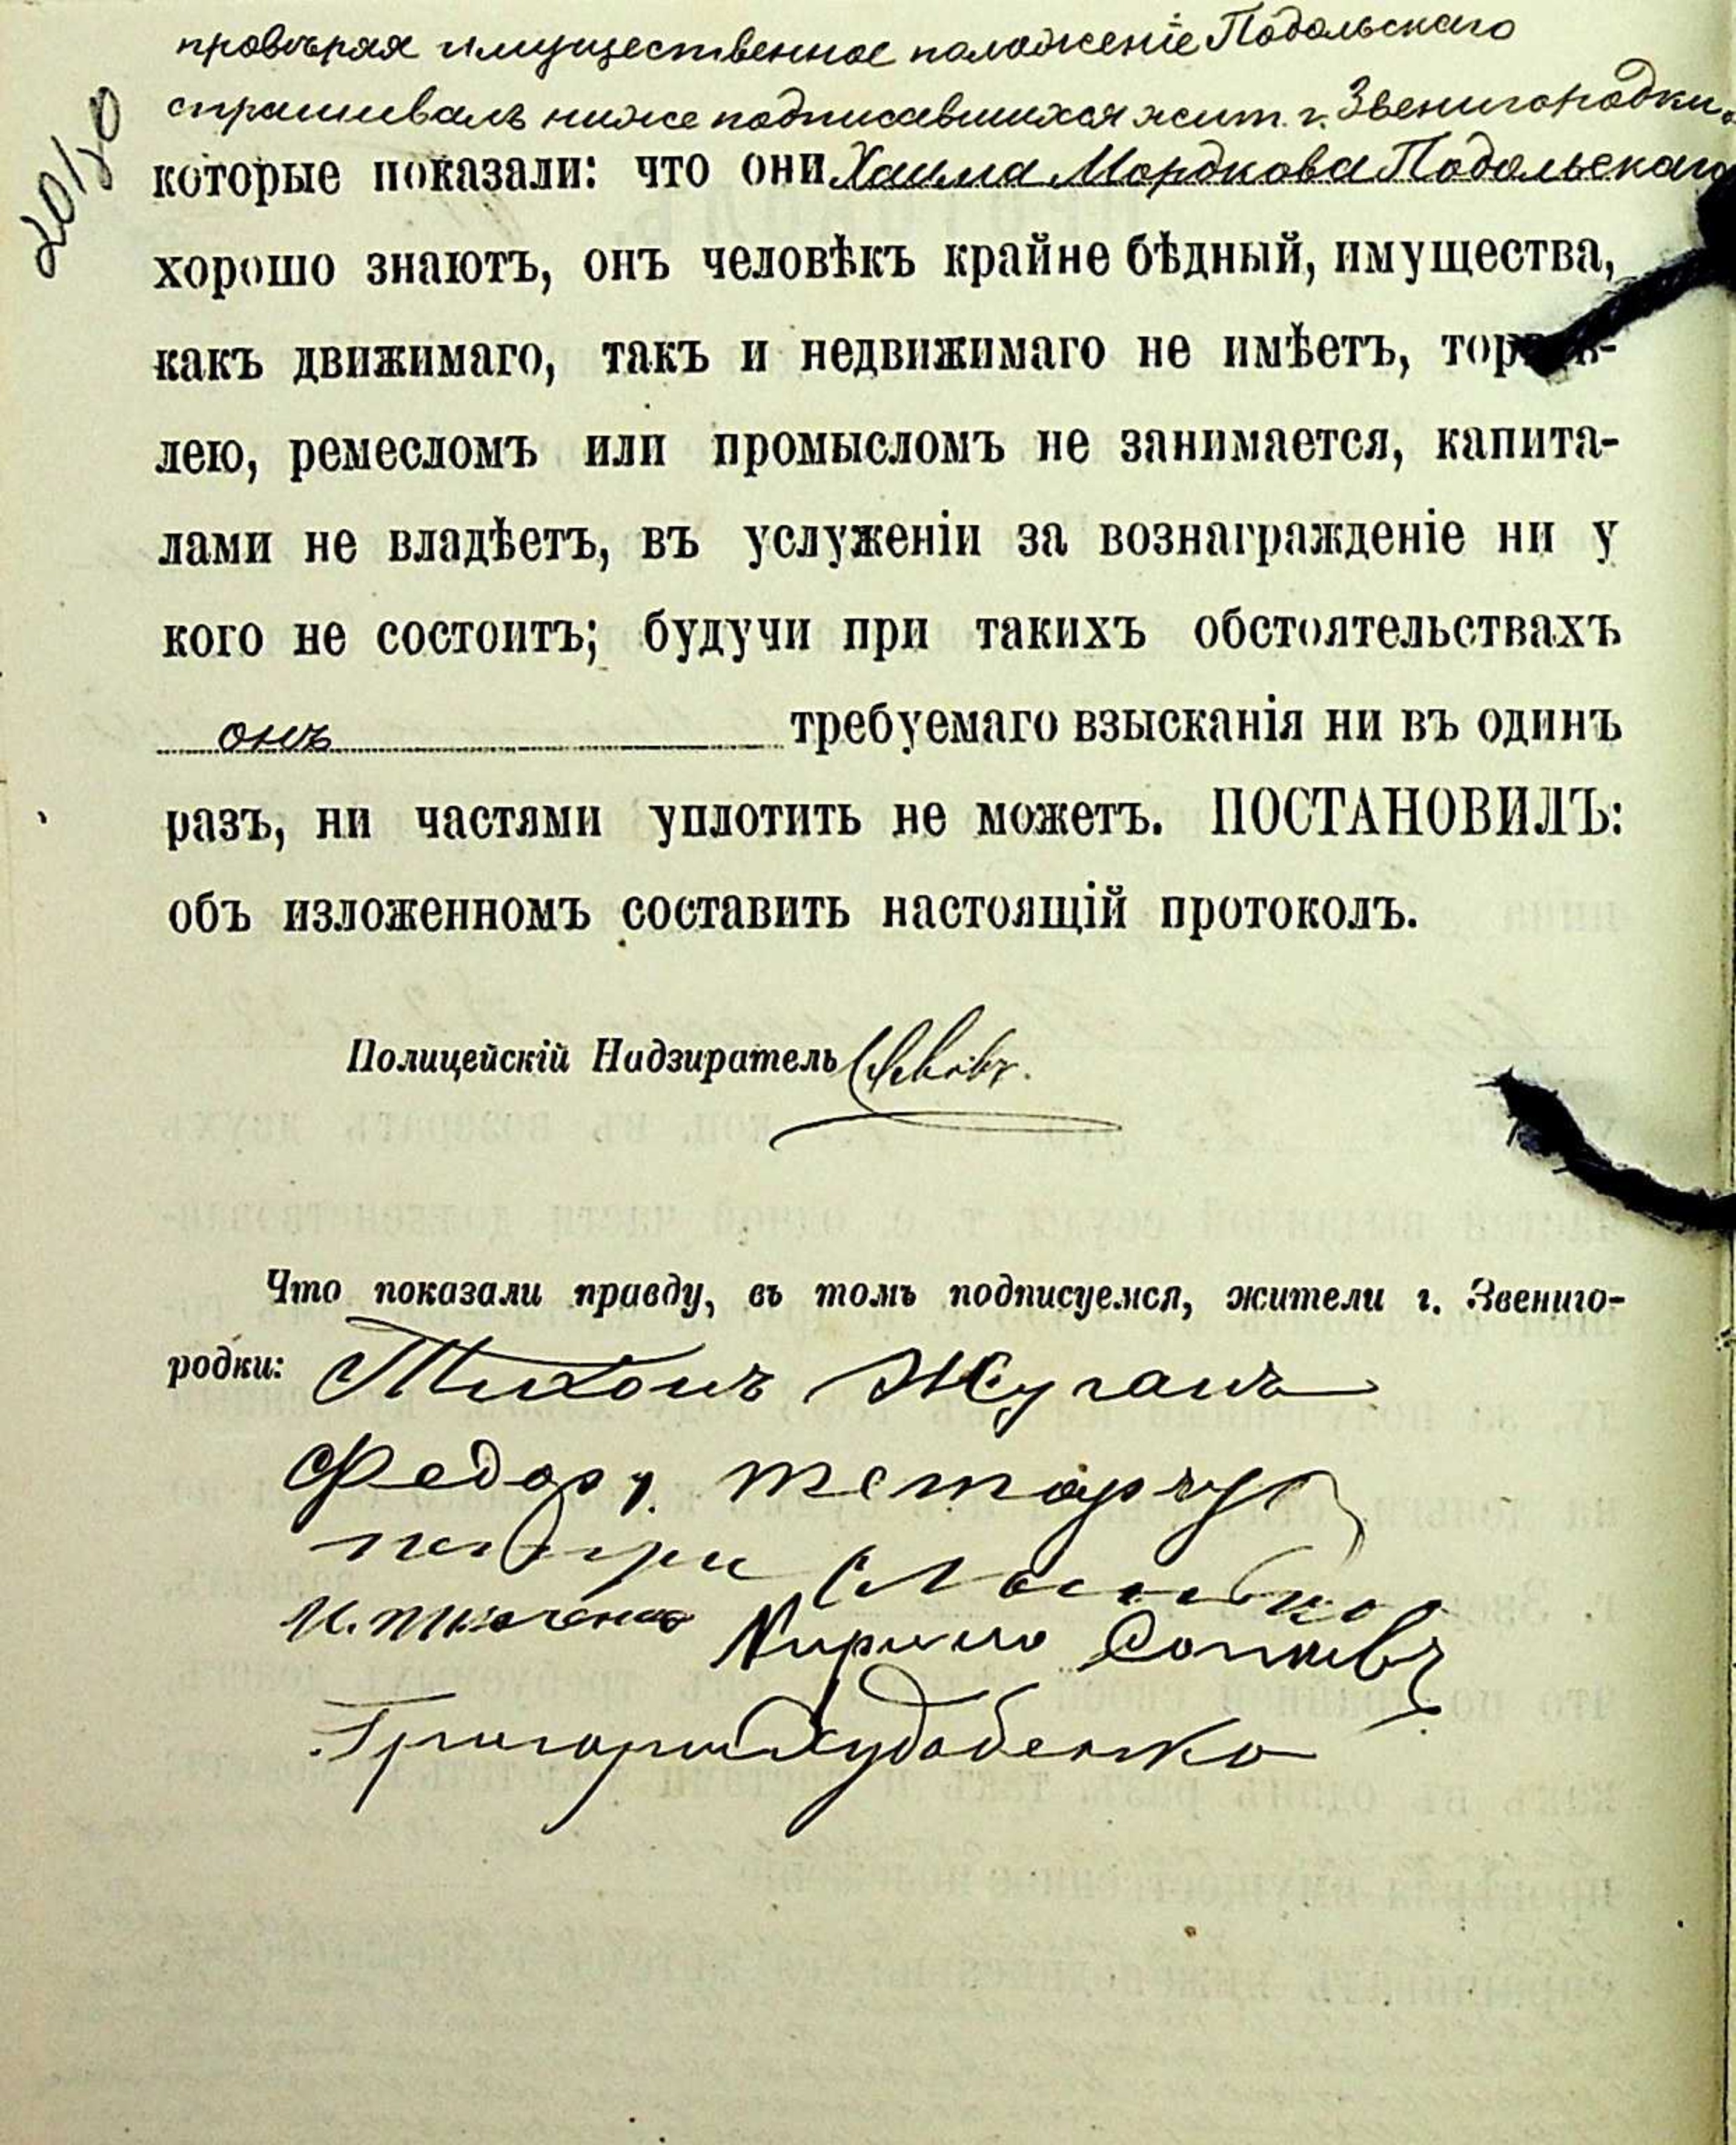 провѣряя имущественное положеніе Подольскаго
спрашивалъ ниже подписавшихся жит. г. Звенигородки,
которые показали: что они Хаима Мордкова Подольскаго
хорошо знаютъ, онъ человѣкъ крайне бѣдный, имущества,
какъ движимаго, такъ и недвижимаго не имѣетъ, торгов-
лею, ремесломъ или промысломъ не занимается, капита-
лами не владѣетъ, въ услуженіи за вознагражденіе ни у
кого не состоитъ; будучи при такихъ обстоятельствахъ
онъ требуемаго взысканія ни въ одинъ
разъ, ни частями уплотить не можетъ. ПОСТАНОВИЛЪ:
объ изложенномъ составить настоящій протоколъ.
Полицейскій Надзиратель
Что показали правду, въ томъ подписуемся, жители г. Звениго-
родки: Тихонъ Жуганъ
Федоръ
Кирило
Григорий Худобенко